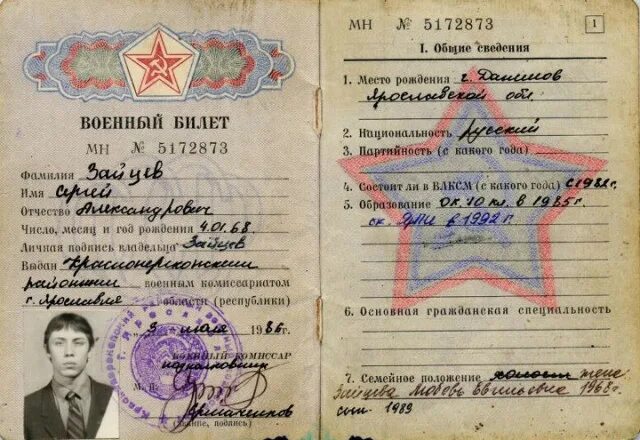 ВОЕННЫЙ БИЛЕТ
МН № 5172873
Фамилия Зайцев
Имя Сергей
Отчество Александрович
Число, месяц и год рождения 4.01.68.
Личная подпись владельца Зайцев
Выдан Красноперекопским
районным военным комиссариатом
г. Ярославля области (республики)
„ 9 мая 1986 г.
ВОЕННЫЙ КОМИССАР
подполковник
М. П.
(звание, подпись)
МН № 5172873
1
I. Общие сведения
1. Место рождения г. Данилов
Ярославской обл.
2. Национальность русский
3. Партийность (с какого года)
4. Состоит ли в ВЛКСМ (с какого года) с 1982 г.
5. Образование ок. 10 кл. в 1985 г.
ок. в 1992 г.
6. Основная гражданская специальность
7. Семейное положение холост жена
Зайцева Любовь Евгеньевна 1968 г.
сын 1989